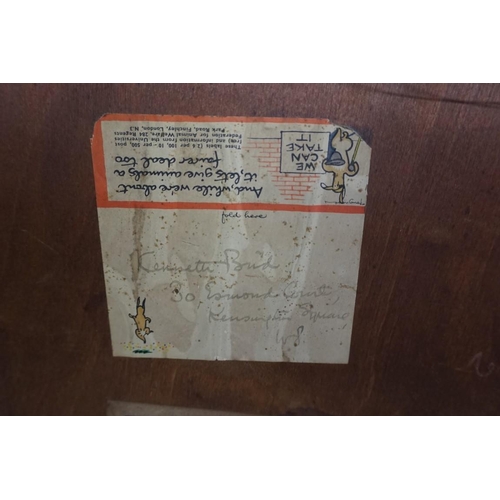 These labels (2/6 per 100, 10/- per 500, post
free) and information from the Universities
Federation for Animal Welfare, 284 Regents
Park Road, Finchley, London, N.3
WE
CAN
TAKE
IT
And, while we're about
it, let's give animals a
fairer deal too
fold here
Kenneth Bird
30 Esmond Court
Kensington Square
W8